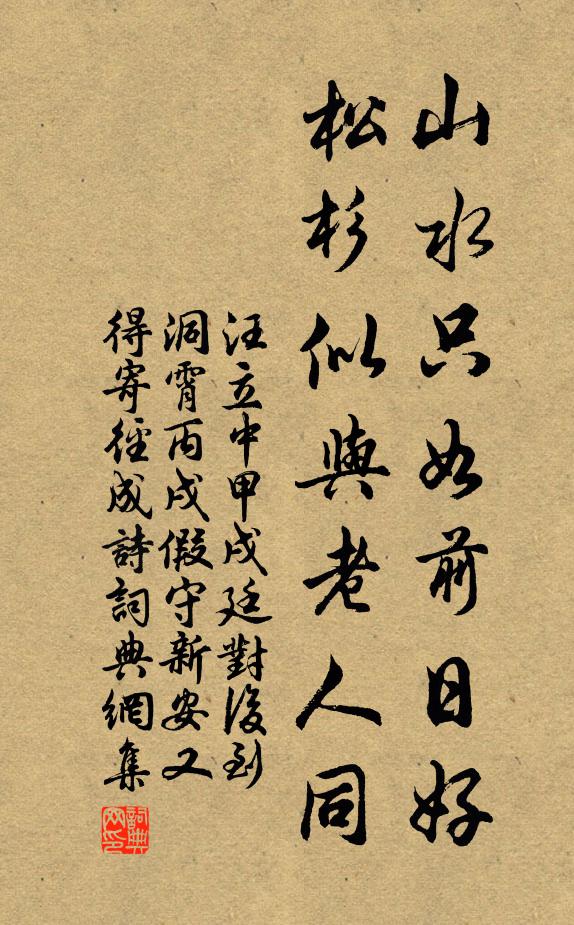 山水只如前日好
松杉似與老人同
汪立中甲戌廷對後到
洞霄丙戌假守新安又
得寄徑成詩詞典網集
詞典网印